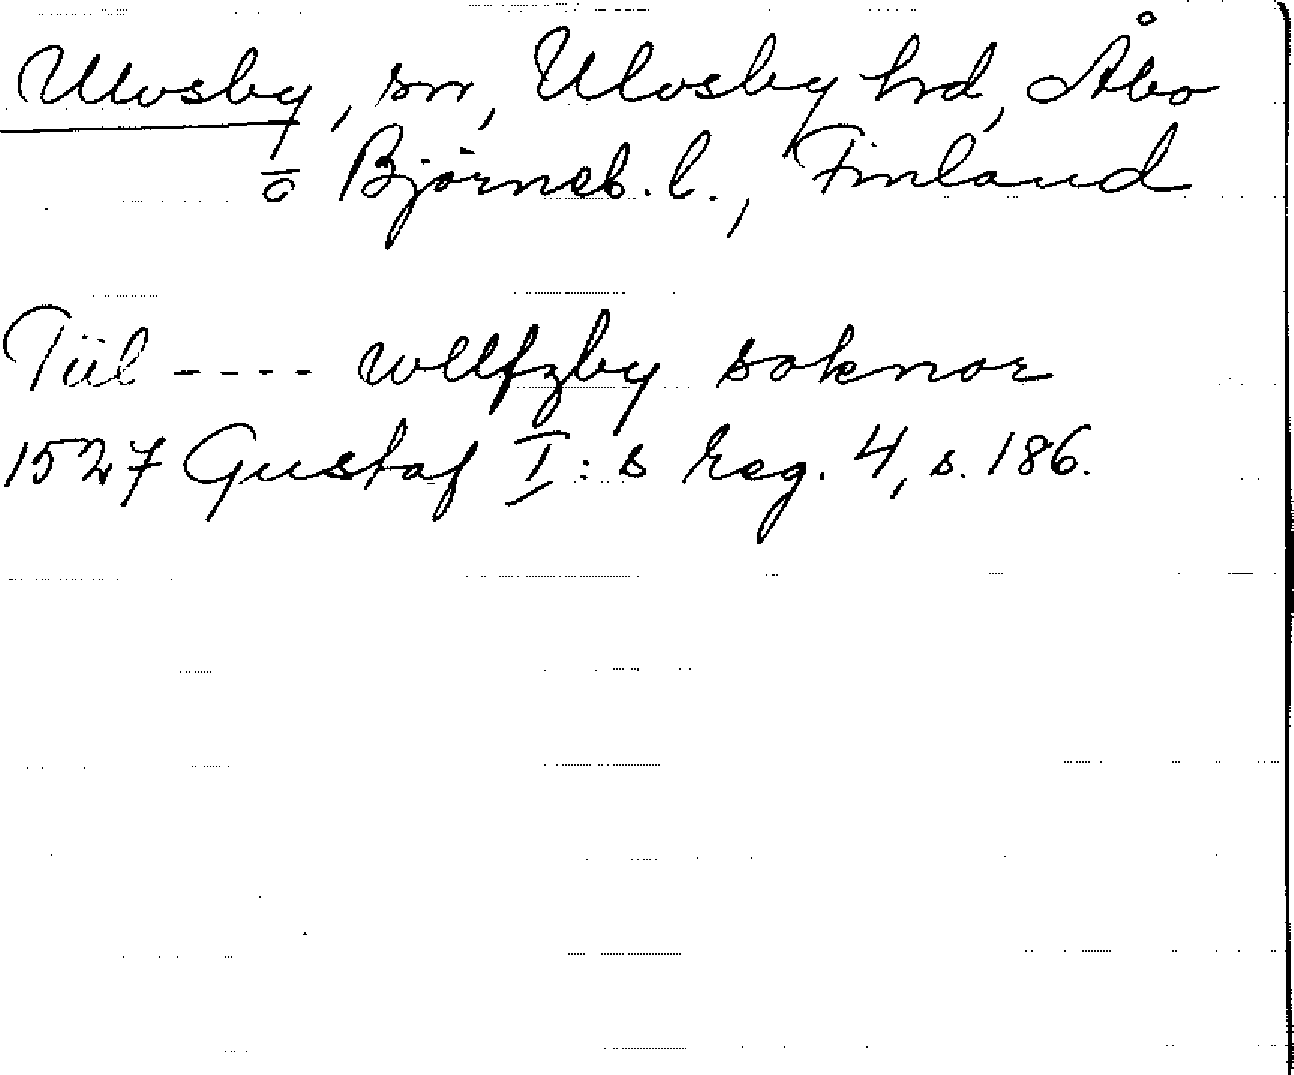 Ulvsby, sn, Ulvsby hrd, Åbo
o Björneb. l., Finland
Tiil ---- wllfzby soknar
1527 Gustaf I:s Reg. 4, s. 186.